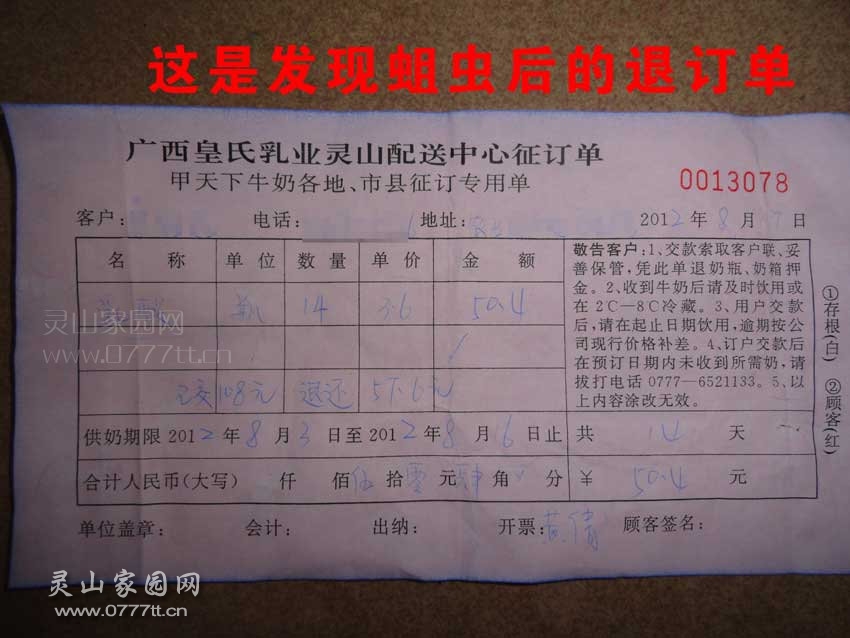 这是发现蛆虫后的退订单
广西皇氏乳业灵山配送中心征订单
甲天下牛奶各地、市县征订专用单
0013078
客户: 电话: 地址: 2012年8月7日
名称 单位 数量 单价 金额
瓶 14 3.6 50.4
已交108元 退还 57.6元
敬告客户:1、交款索取客户联、妥
善保管,凭此单退奶瓶、奶箱押
金。2、收到牛奶后请及时饮用或
在2℃—8℃冷藏。3、用户交款
后,请在起止日期饮用,逾期按公
司现行价格补差。4、订户交款后
在预订日期内未收到所需奶,请
拨打电话0777—6521133。5、以
上内容涂改无效。
供奶期限2012年8月3日至2012年8月16日止 共14天
合计人民币(大写) 仟 佰伍拾零元肆角 分 ¥50.4元
单位盖章: 会计: 出纳: 开票:黄倩 顾客签名:
①存根(白) ②顾客(红)
灵山家园网
www.0777tt.cn
灵山家园网
www.0777tt.cn